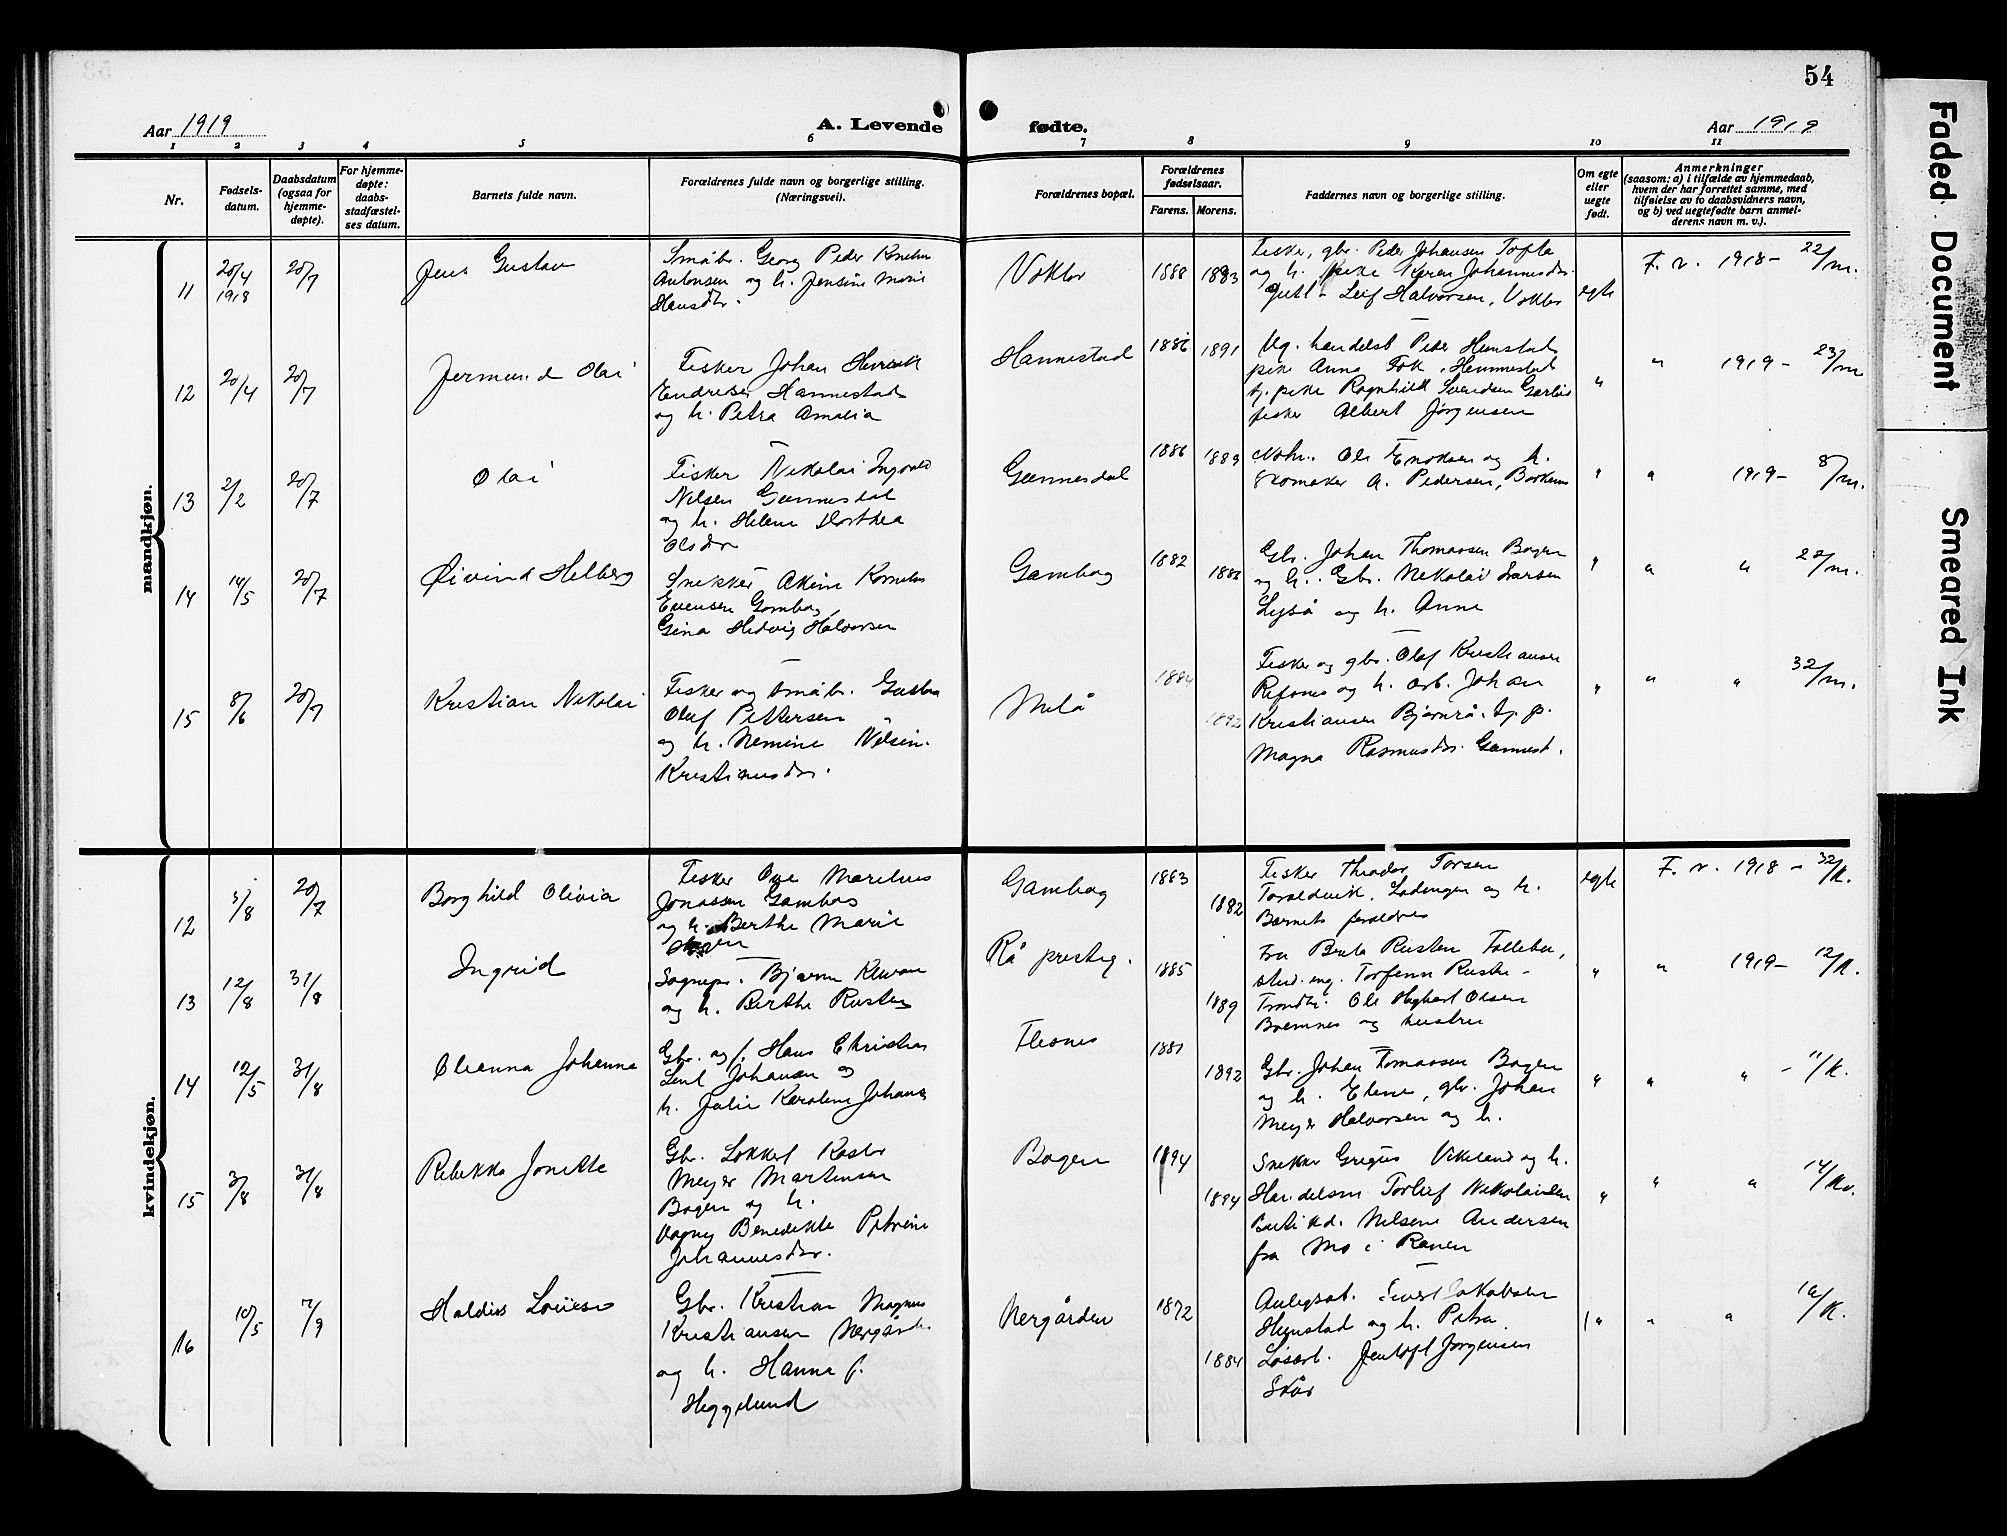 54
Aar 1919
A. Levende fødte.
Aar 1919
1 2 3 4 5 6 7 8 9 10 11
Nr.
Fødsels-
datum.
Daabsdatum
(ogsaa for
hjemme-
døpte).
For hjemme-
døpte:
daabs-
stadfæstel-
ses datum.
Barnets fulde navn.
Forældrenes fulde navn og borgerlige stilling.
(Næringsvei).
Forældrenes bopæl.
Forældrenes
fødselsaar.
Farens. Morens.
Faddernes navn og borgerlige stilling.
Om egte
eller
uegte
født.
Anmerkninger
(saasom: a) i tilfælde av hjemmedaab,
hvem der har forrettet samme, med
tilføielse av to daabsvidners navn,
og b) ved uegtefødte barn anmel-
derens navn m. v.).
mandkjøn.
11 20/4 1918 20/7 Jens Gustav
Småbr. Georg Peder
Antonsen og h. Jensine Marie
Hansdtr.
Voktor 1888 1883
Fisker, gbr. Peder Johansen Tofta
og h. pike Karen Johannesdtr.
Leif Halvorsen, Voktor
egte F. r. 1918 - 22/m.
12 20/4 20/7 Jermund Olai
Fisker Johan Henrik
Endresen Hannestad
og h. Petra Amalia
Hannestad 1886 1891
handelsb Peder Hemstad
pike Anna Hemmestad
tj. pike Ragnhild Svendsen
fisker Albert Jørgensen
" " 1919 - 23/m
13 2/2 20/7 Olai
Fisker Nikolai Ingvald
Nilsen Gunnesdal
og h. Helene Dorthea
Olsdtr
Gunnesdal 1886 1889
Ole Enoksen og h.
skomaker A. Pedersen, Borkenes
" " 1919 - 8/m.
14 14/5 20/7 Øivind Helberg
Snekker Akim Kornelius
Evensen Gambog
Gina Hedvig Halvorsen
Gambog 1882 1886
Gbr. Johan Thomassen Bogen
og h. Gbr. Nikolai Larsen
Lyså og h. Anne
" " " 22/m.
15 8/6 20/7 Kristian Nikolai
Fisker og småbr. Gustav
Olaf Pettersen
og h. Nemine Nilsin.
Kristiansdtr.
Melå 1884 1892
Fisker og gbr. Olaf Kristiansen
Refsnes og h. arb. Johan
Kristiansen Bjørnrå. tj. p.
Magna Rasmusdtr. Gunnesd.
" " " 32/m.
kvindekjøn.
12 3/8 20/7 Borghild Olivia
Fisker Ove Marelius
Jonassen Gambog
og h. Berthe Marie
Gambog 1883 1882
Fisker Theodor Torsen
Lødingen og h.
Barnets foreldres
egte F. r. 1918 - 32/K.
13 12/8 31/8 Ingrid
Sognepr. Bjarne
og h. Berthe Rusten
Rå presteg. 1885 1889
Fru Berta Rusten Follebu,
stud. eng. Torfinn Rusten -
Trondh. Ole Olsen
Bremnes og hustru
" " 1919 - 12/K.
14 12/5 31/8 Oleanna Johanna
Gbr. og f. Hans Christian
Johansen og
h. Julie Karoline Johans
Flesnes 1881 1892
Gbr. Johan Tomassen Bogen
og h. Elene, gbr. Johan
Meyer Halvorsen og h.
" " " - 11/K.
15 3/8 31/8 Rebekka Jonette
Gbr. Lokkert Kastor
Meyer Martensen
Bogen og h.
Vagny Benedikte Petrine
Johannesdtr.
Bogen 1894 1894
Snekker Gregus Vikeland og h.
Handelsm Torleif Nikolaisen
Butikkd. Nilsine Andersen
fra Mo i Ranen
" " " 14/Kv.
16 10/5 7/9 Haldis Lovise
Gbr. Kristian Magnus
Kristiansen Nergård.
og h. Hanna f.
Heggelund
Nergården 1872 1884
Anlegsarb. Sivert Jakobsen
Hemstad og h. Petra.
Løsarb. Jentoft Jørgensen
Skår
" " " 16/K.
Faded Document
Smeared Ink